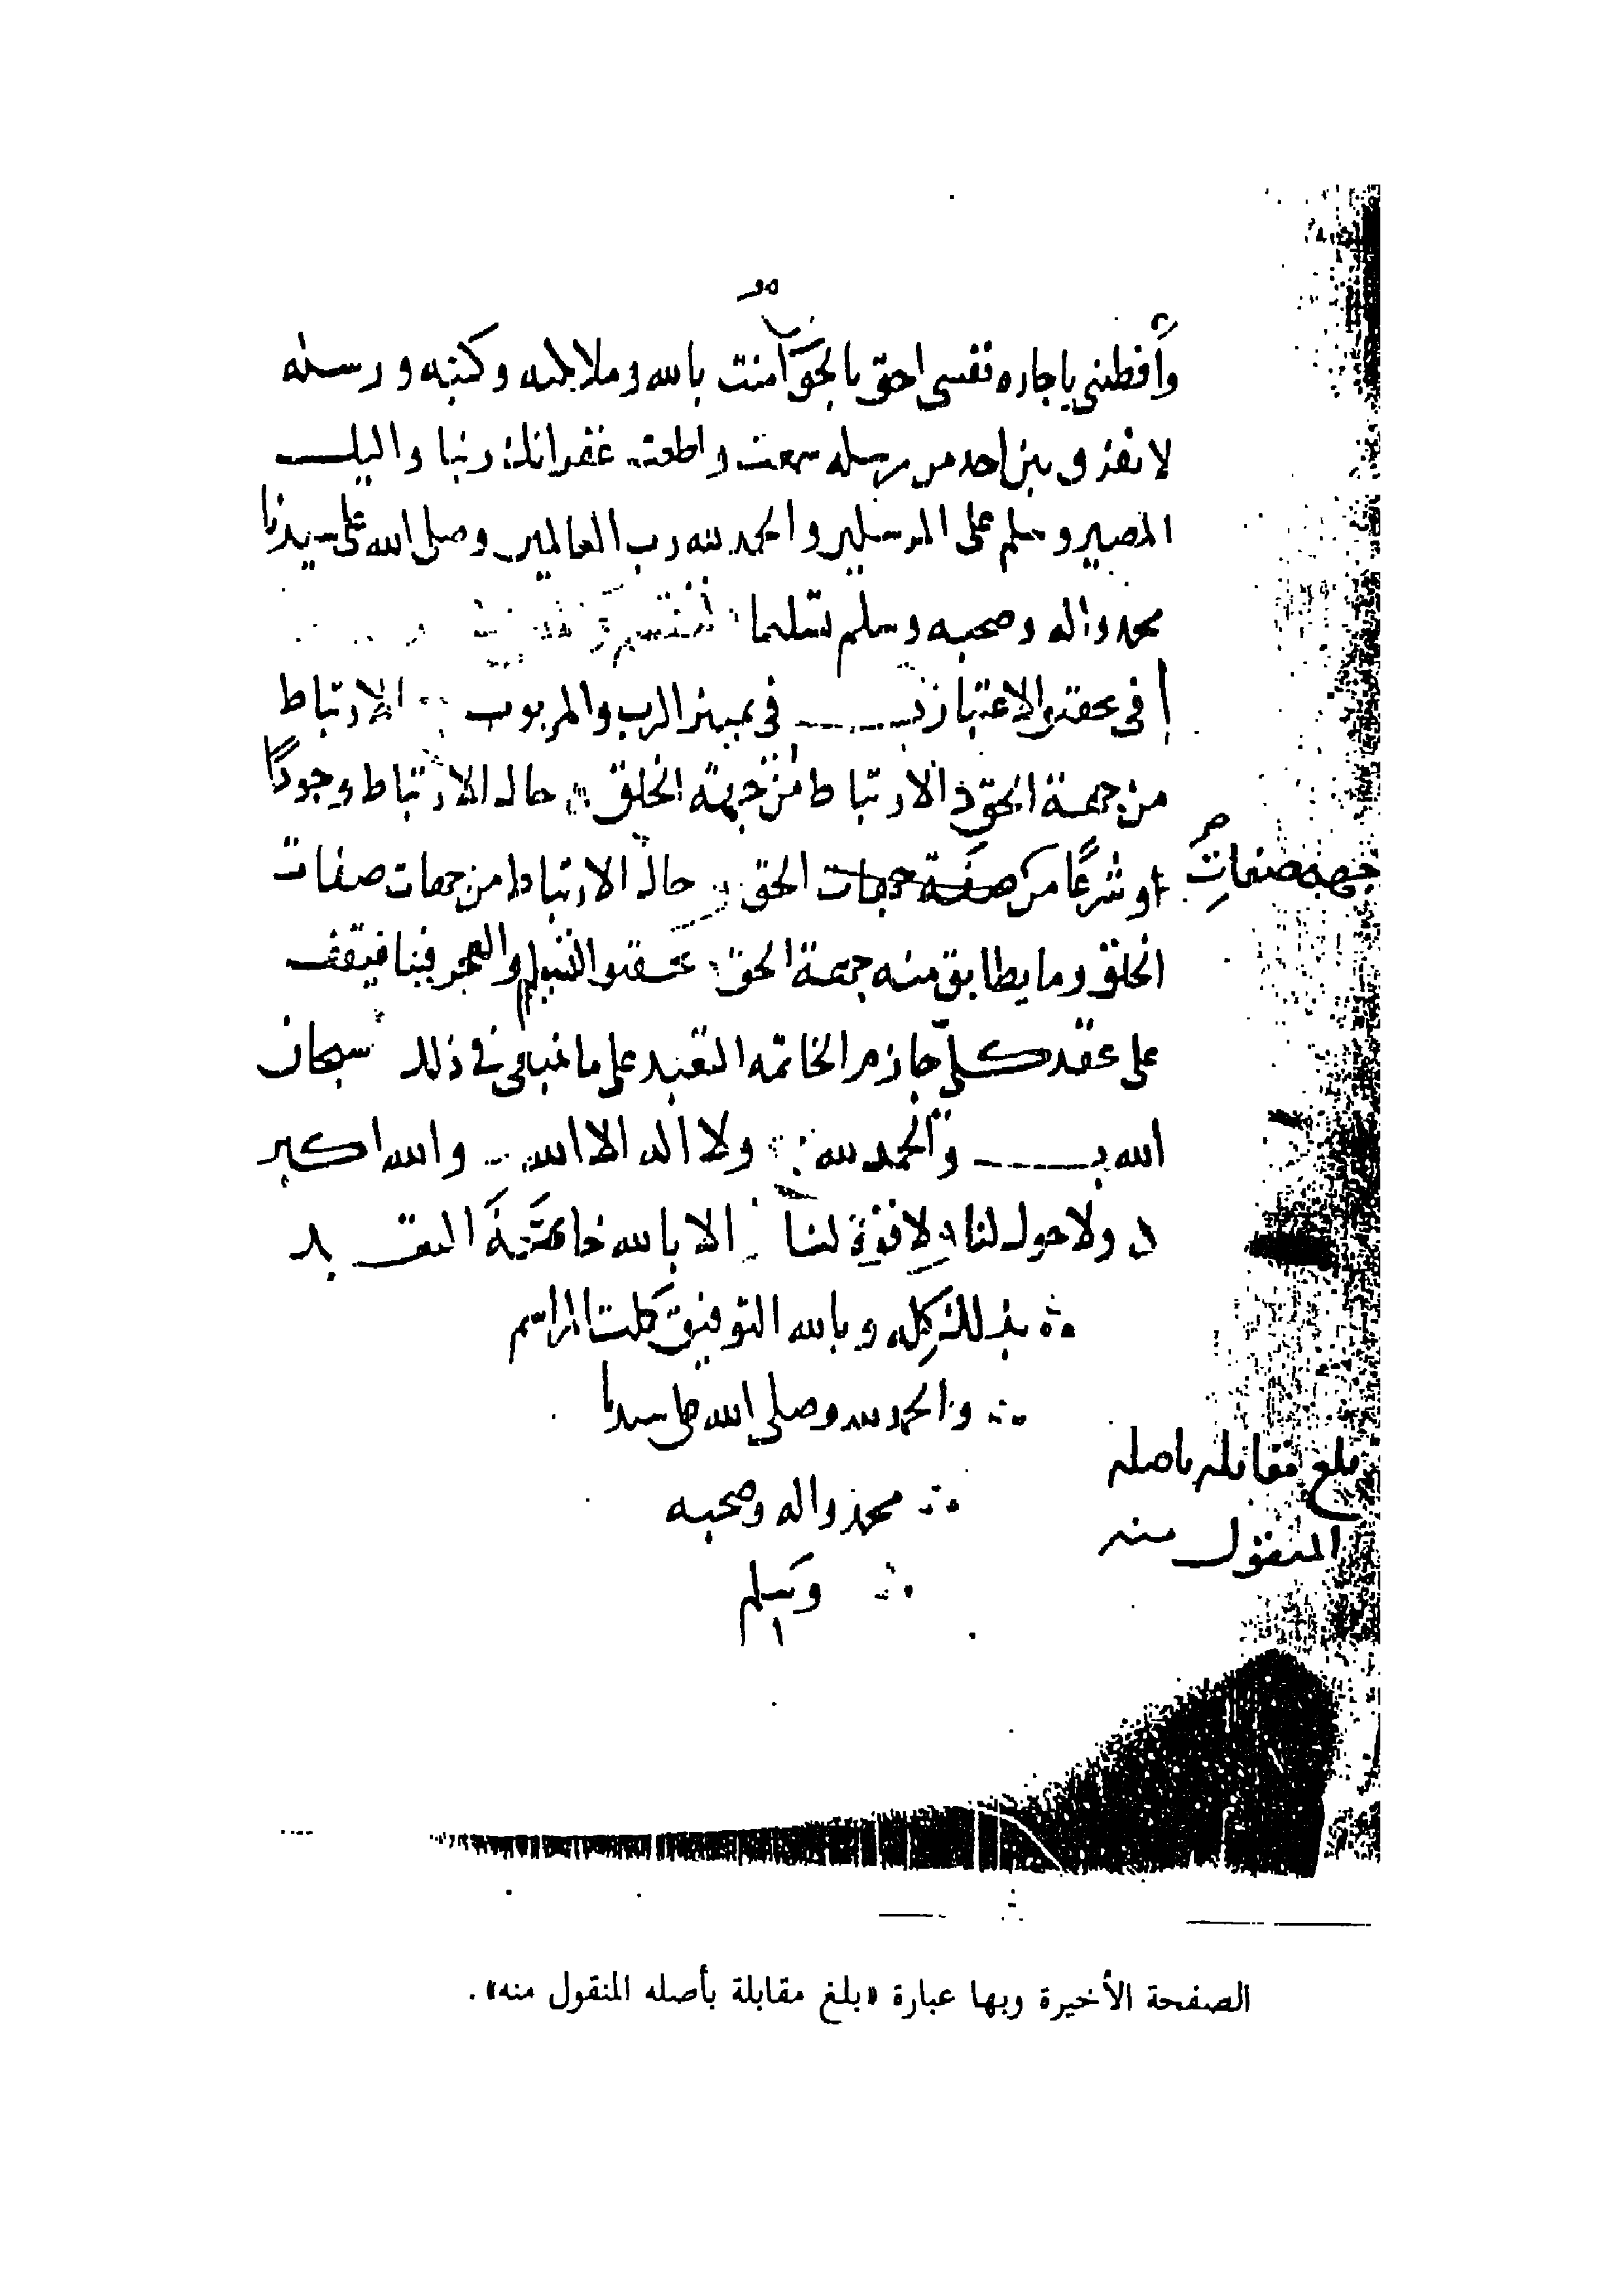 باجاره نفسى احق بالحق آمنت بالله وملائكته وكتبه ورسله
لا نفرق بين احد من رسله سمعت واطعت غفرانك ربنا واليك
المصير وسلم على المرسلين والحمد لله رب العالمين وصلى الله على سيدنا
محمد واله وصحبه وسلم تسليما
فى تمييز الرب والمربوب الارتباط
من جهة الحق الارتباط من جهة الخلق حالة الارتباط وجودًا
او شرعًا من صفة جهات الحق حالة الارتباط من جهات صفات
جهة صفات
الخلق وما يطابق منه جهة الحق والعجز فينا فيقف
على عقد كل جازم الخاتمه التقييد على ما فى ذلك سبحان
الله والحمد لله ولا اله الا الله والله اكبر
ولا حول لنا ولا قوة لنا الا بالله خاتمة التقييد
بذلك كله وبالله التوفيق كملت المراسم
والحمد لله وصلى الله على سيدنا
محمد واله وصحبه
وسلم
بلغ مقابلة باصله
المنقول منه
الصفحة الأخيرة وبها عبارة «بلغ مقابلة بأصله المنقول منه».